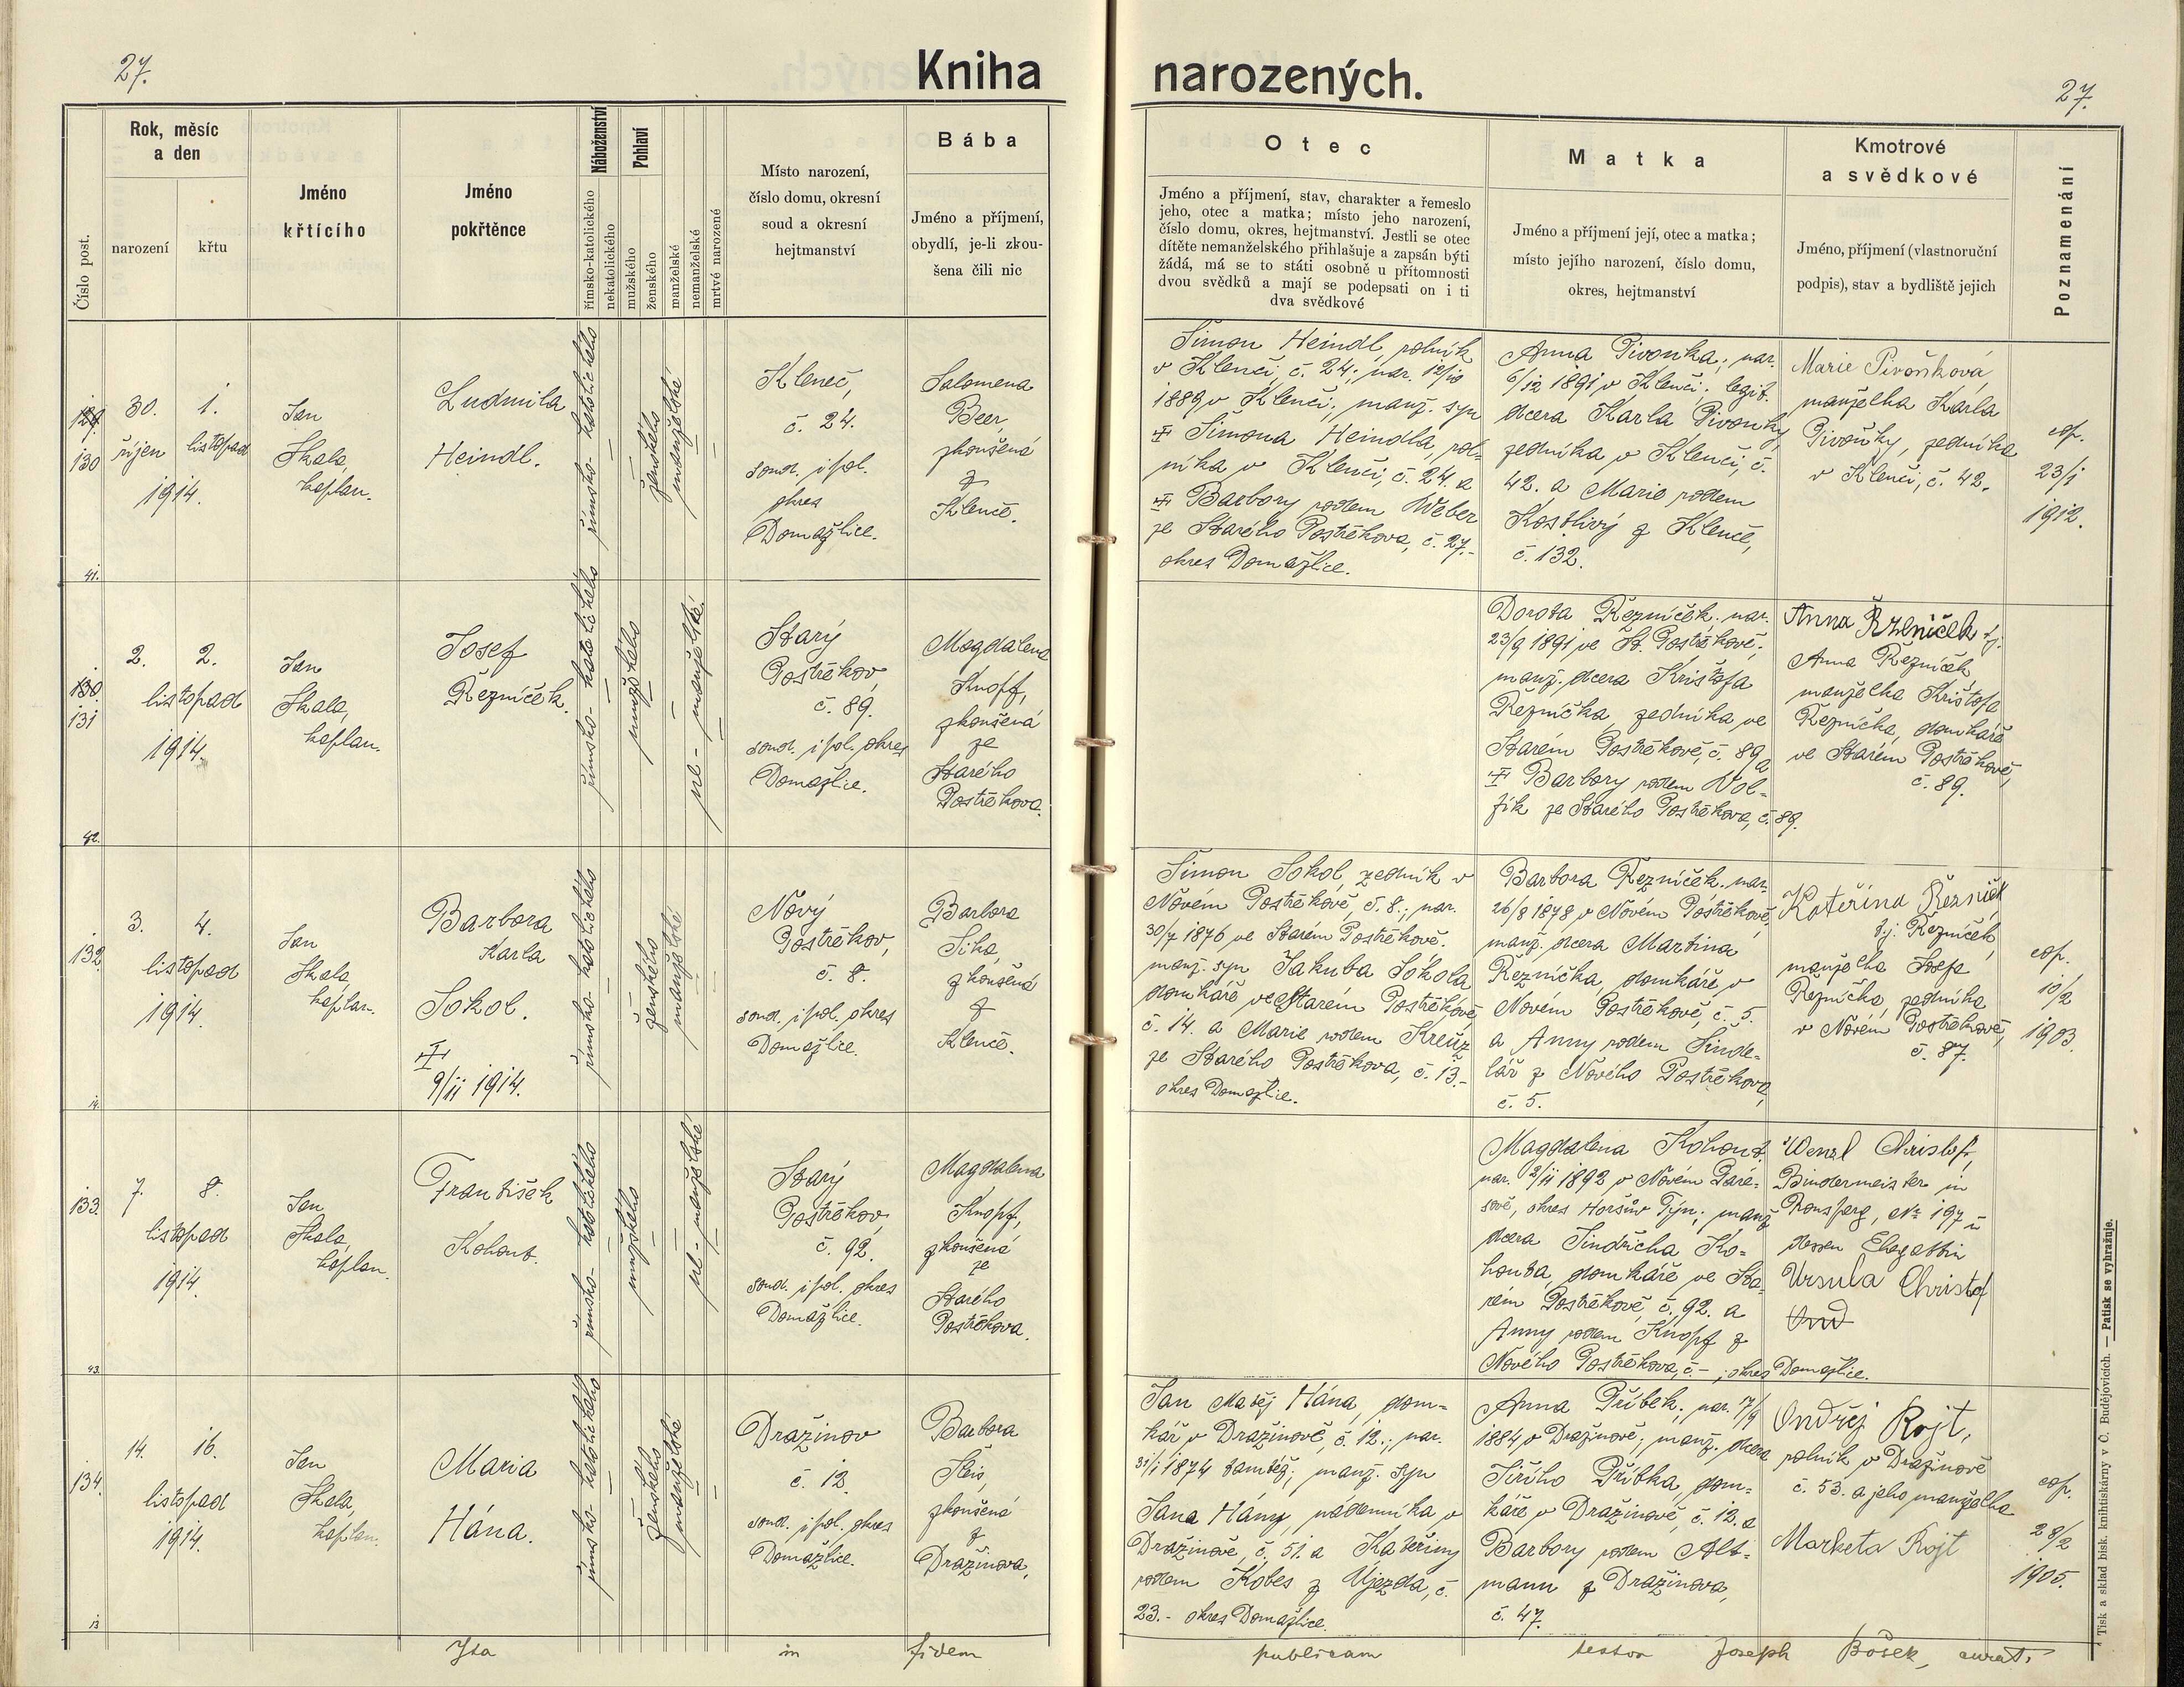 27.
Kniha narozených.
27.
Číslo post.
Rok, měsíc
a den
narození
křtu
Jméno
křtícího
Jméno
pokřtěnce
Náboženství
římsko-katolického
nekatolického
Pohlaví
mužského
ženského
manželské
nemanželské
mrtvé narozené
Místo narození,
číslo domu, okresní
soud a okresní
hejtmanství
Bába
Jméno a příjmení,
obydlí, je-li zkou-
šena čili nic
Otec
Jméno a příjmení, stav, charakter a řemeslo
jeho, otec a matka; místo jeho narození,
číslo domu, okres, hejtmanství. Jestli se otec
dítěte nemanželského přihlašuje a zapsán býti
žádá, má se to státi osobně u přítomnosti
dvou svědků a mají se podepsati on i ti
dva svědkové
Matka
Jméno a příjmení její, otec a matka;
místo jejího narození, číslo domu,
okres, hejtmanství
Kmotrové
a svědkové
Jméno, příjmení (vlastnoruční
podpis), stav a bydliště jejich
Poznamenání
129.
130
41.
30. 1.
říjen listopad
1914.
Jan
Skala,
kaplan.
Ludmila
Heindl.
římsko-katolického
ženského
manželské
Kleneč,
č. 24.
soud. i pol.
okres
Domažlice.
Salomena
Beer,
zkoušená
z
Klenče.
Šimon Heindl, rolník
v Klenči č. 24; nar. 12/10
1889 v Klenči; manž. syn
Šimona Heindla, rol-
níka v Klenči, č. 24. a
Barbory rodem Weber
ze Starého Postřekova, č. 27.-
okres Domažlice.
Anna Pivonka; nar.
6/12 1891 v Klenči; legit.
dcera Karla Pivonky,
zedníka v Klenči, č.
42. a Marie rodem
Kostlivý z Klenče,
č. 132.
Marie Pivoňková
manželka Karla
Pivoňky, zedníka
v Klenči, č. 42.
cop.
23/1
1912.
130.
131
42.
2. 2.
listopad
1914.
Jan
Skala,
kaplan.
Josef
Řezníček.
římsko-katolického
mužského
ne-manželské.
Starý
Postřekov
č. 89.
soud. i pol. okres
Domažlice.
Magdalena
Knopf,
zkoušená
ze
Starého
Postřekova.
Dorota Řezníček. nar.
23/9 1891 ve St. Postřekově;
manž. dcera Krištofa
Řezníčka, zedníka ve
Starém Postřekově, č. 89 a
Barbory rodem Vol-
fík ze Starého Postřekova, č. 89.
Anna Řzeniček tj.
Anna Řezníček
manželka Krištofa
Řezníčka, domkáře
ve Starém Postřekově,
č. 89.
132.
14.
3. 4.
listopad
1914.
Jan
Skala,
kaplan.
Barbora
Karla
Sokol.
9/11 1914.
římsko-katolického
ženského
manželské
Nový
Postřekov,
č. 8.
soud. i pol. okres
Domažlice.
Barbora
Sika,
zkoušená
z
Klenče.
Šimon Sokol, zedník v
Novém Postřekově, č. 8.; nar.
30/7 1876 ve Starém Postřekově.
manž. syn Jakuba Sokola
domkáře ve Starém Postřekově,
č. 14. a Marie rodem Kreuz
ze Starého Postřekova, č. 13.-
okres Domažlice.
Barbora Řezníček. nar.
26/8 1878 v Novém Postřekově,
manž. dcera Martina
Řezníčka, domkáře v
Novém Postřekově, č. 5.
a Anny rodem Šinde-
lář z Nového Postřekova,
č. 5.
Kateřina Řezniček
t.j. Řezníček,
manželka Josefa
Řezníčka, zedníka
v Novém Postřekově,
č. 87.
cop.
10/2
1903.
133.
43.
7. 8.
listopad
1914.
Jan
Skala,
kaplan.
František
Kohout.
římsko-katolického
mužského
ne-manželské
Starý
Postřekov,
č. 92.
soud. i pol. okres
Domažlice.
Magdalena
Knopf,
zkoušená
ze
Starého
Postřekova.
Magdalena Kohout.
nar. 2/11 1892 v Novém Paře-
zově, okres Horšův Týn; manž
dcera Jindřicha Ko-
houta, domkáře ve Sta-
rém Postřekově, č. 92. a
Anny rodem Knopf z
Nového Postřekova, č - ; okres Domažlice.
Wenzl Christof,
Bindermeister in
Ronsperg, No 197 u
dessen Ehegattin
Ursula Christof
134.
13
14. 16.
listopad
1914.
Jan
Skala,
kaplan.
Maria
Hána.
římsko-katolického
ženského
manželské
Dražinov
č. 12.
soud. i pol. okres
Domažlice.
Barbora
Šteis,
zkoušená
z
Dražinova.
Jan Matěj Hána, dom-
kář v Dražinově, č. 12.; nar.
31/1 1874 tamtéž; manž. syn
Jana Hány, nádenníka v
Dražinově, č. 51. a Kateřiny
rodem Kobes z Újezda, č.
23.- okres Domažlice.
Anna Příbek; nar. 17/9
1884 v Dražinově; manž. dcera
Jiřího Příbka, dom-
káře v Dražinově, č. 12. a
Barbory rodem Alt-
mann z Dražinova,
č. 47.
Ondřej Rojt,
rolník v Dražinově
č. 53. a jeho manželka
Marketa Rojt
cop.
28/2
1905.
Ita in fidem publicam testor Joseph Bošek, curat.
Tisk a sklad bisk. knihtiskárny v Č. Budějovicích. — Patisk se vyhražuje.